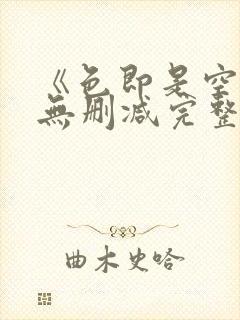 《色即是空
無删减完整
曲木史哈